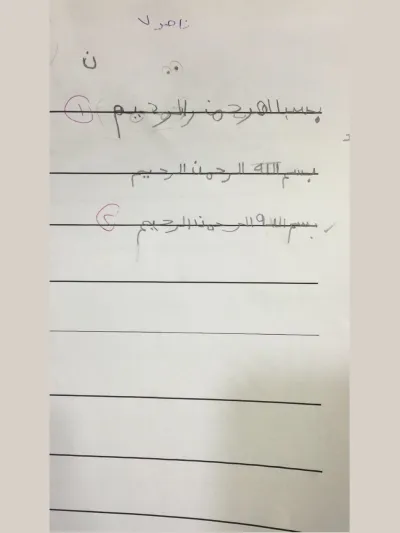 ناصر ٧
ن
بحسبالله رحمن الرحيم ١
بسم الله الرحمن الرحيم
بسم الله الرحمن الرحيم ٢